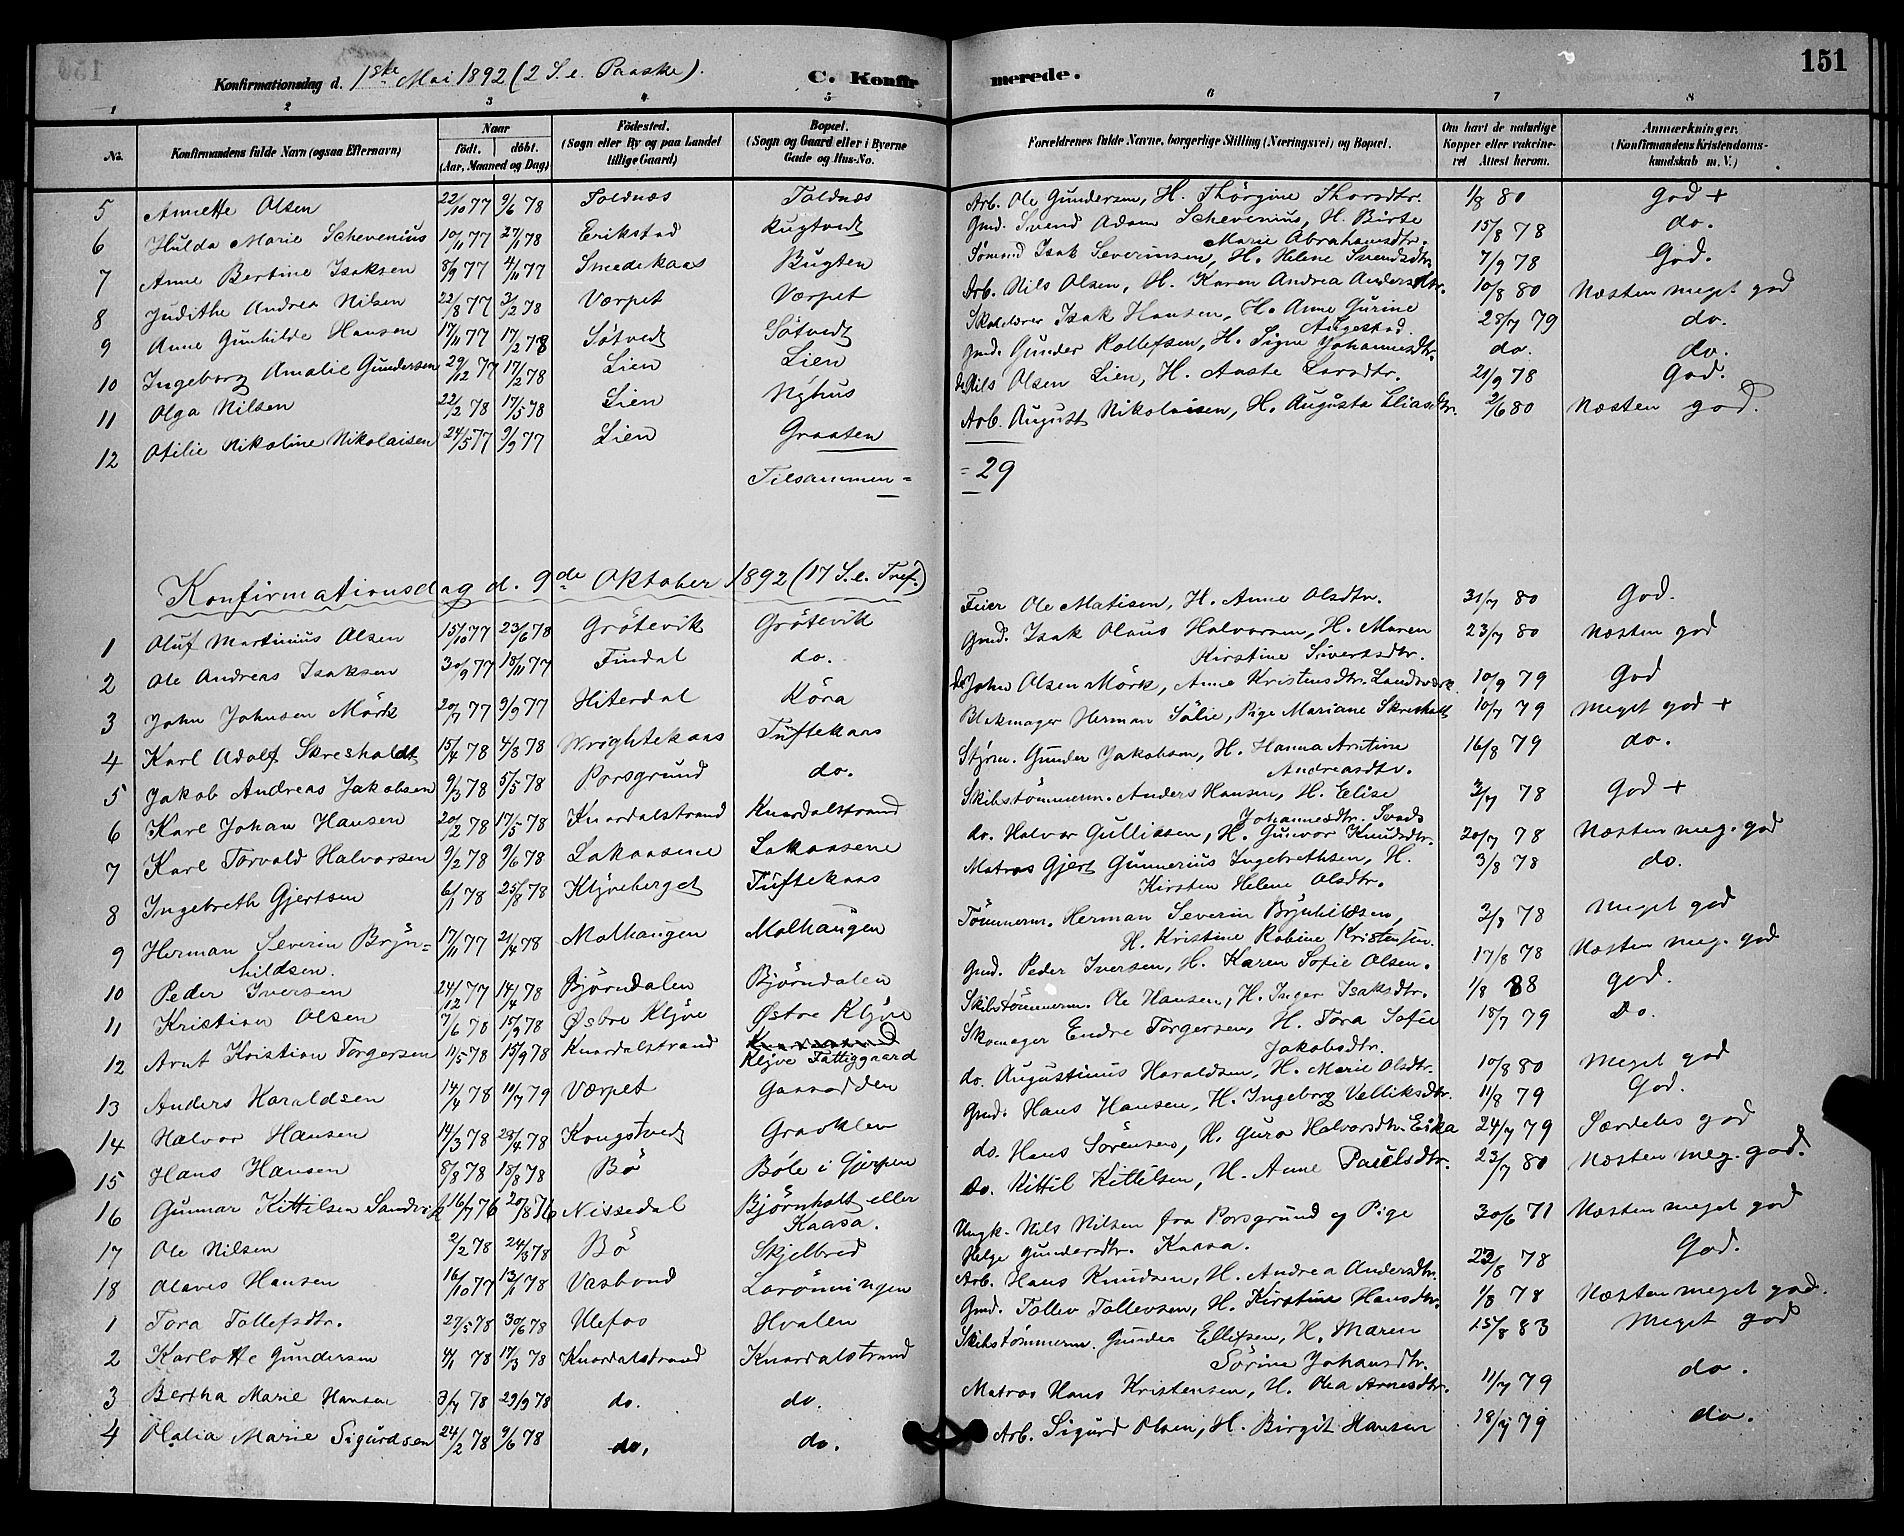 151
Konfirmationsdag d. 1ste Mai 1892 (2 S. e. Paaske).
C. Konfirmerede.
1 2 3 4 5 6 7 8
No.
Konfirmandens fulde Navn (ogsaa Efternavn)
Naar født. døbt. (Aar, Maaned og Dag)
Fødested. (Sogn eller By og paa Landet tillige Gaard)
Bopæl. (Sogn og Gaard eller i Byerne Gade og Hus-No.
Forældrenes fulde Navne, borgerlige Stilling (Næringsvei) og Bopæl.
Om havt de naturlige Kopper eller vakcineret Attest herom.
Anmærkninger. (Konfirmandens Kristendomskundskab m. V.)
5 Annette Olsen 22/10 77 9/6 78 Foldnæs Foldnæs Arb. Ole Gundersen, H. Thörgine Thorsdtr. 1/8 80 God +
6 Hulda Marie Schevenius 10/11 77 27/1 78 Erikstad Rugtvedt Gmd. Svend Adam Schevenius, H. Birte Marie Abrahamsdtr. 15/8 78 do.
7 Anne Bertine Isaksen 8/9 77 4/11 77 Smedekaas Bugten Sömand Isak Severinsen, H. Helene Svendsdtr. 7/9 78 God.
8 Judithe Andrea Nilsen 22/8 77 3/2 78 Værpet Værpet Arb. Nils Olsen, H. Karen Andrea Andersdtr. 10/8 80 Næsten meget god
9 Anne Gunhilde Hansen 17/11 77 17/2 78 Søtvedt Søtvedt Skolelærer Isak Hansen, H. Anne Gurine Augestad. 28/7 79 do.
10 Ingeborg Amalie Gundersen 29/12 77 17/2 78 Lien Lien Gmd. Gunder Rollefsen, H. Signe Johannesdtr. do. do.
11 Olga Nilsen 22/2 78 17/5 78 Lien Nyhus do Nils Olsen Lien, H. Aaste Larsdtr. 21/9 78 God.
12 Otilie Nikoline Nikolaisen 24/5 77 9/9 77 Lien Graaten Arb. August Nikolaisen, H. Augusta Eliasdtr. 2/6 80 Næsten god.
Tilsammen = 29
Konfirmationsdag d. 9de Oktober 1892 (17 S. e. Tref.)
1 Oluf Martinius Olsen 15/10 77 23/6 78 Grötevik Grötevik Feier Ole Matisen, H. Anne Olsdtr. 31/7 80 God.
2 Ole Andreas Isaksen 30/9 77 18/11 77 Findal do. Gmd. Isak Olaus Halvorsen, H. Maren Kirstine Sivertsdtr. 23/7 80 Næsten god
3 John Johnsen Mörk 20/7 77 9/9 77 Hiterdal Köra do John Olsen Mörk, Anne Kristensdtr. Landsværk. 10/9 79 God
4 Karl Adolf Skresholdt 15/4 78 4/8 78 Wrightekaas Tuftekaas Blokmager Herman Sölie, Pige Mariane Skresholt 10/7 79 Meget god +
5 Jakob Andreas Jakobsen 9/3 78 5/5 78 Porsgrund do. Styrm. Gunder Jakobsen, H. Hanna Arntine Andreasdtr. 16/8 79 do.
6 Karl Johan Hansen 20/2 78 17/5 78 Knardalstrand Knardalstrand Skibstömmerm. Anders Hansen, H. Elise Johannesdtr. 3/7 78 God +
7 Karl Torvald Halvorsen 9/2 78 9/6 78 Lakaasene Lakaasene do. Halvor Gulliksen, H. Gunvor Knudsdtr. 20/7 78 Næsten meg. god
8 Ingebreth Gjertsen 6/1 78 25/8 78 Klyveberget Tuftekaas Matros Gjert Gunnerius Ingebrethsen, H. Kirsten Helene Olsdtr. 3/8 78 do.
9 Herman Severin Brynhildsen. 17/11 77 21/4 78 Molhaugen Molhaugen Tömmerm. Herman Severin Brynhildsen, H. Kristine Robine Kristensen. 3/8 78 Meget god
10 Peder Iversen 24/12 77 14/4 78 Bjørndalen Bjørndalen Gmd. Peder Iversen, H. Karen Sofie Olsen. 17/8 78 Næsten meg. god
11 Kristian Olsen 7/6 78 15/9 78 Østre Klyve Østre Klyve Skibstömmerm. Ole Hansen, H. Inger Isaksdtr. 1/8 88 god.
12 Arnt Kristian Torgersen 11/5 78 15/9 78 Knardalstrand Klyve Fattiggaard Skomager Endre Torgersen, H. Tora Sofie Jakobsdtr. 18/7 79 Do.
13 Anders Haraldsen 14/4 78 10/7 79 Værpet Gaasodden do. Augustinus Haraldsen, H. Marie Olsdtr. 10/8 80 Meget god
14 Halvor Hansen 14/3 78 23/4 78 Kongstvedt Gravklev Gmd. Hans Hansen, H. Ingeborg Velliksdtr. 11/8 79 God.
15 Hans Hansen 8/8 78 18/8 78 Bö Böle i Gjerpen do. Hans Sörensen, H. Guro Halvorsdtr. Eika 24/7 79 Særdeles god
16 Gunnar Kittilsen Sandvik 16/7 76 20/8 76 Nissedal Bjørnholt eller Kaasa. do. Kittil Kittilsen, H. Anne Paulsdtr. 23/7 80 Næsten meg. god.
17 Ole Nilsen 2/2 78 24/3 78 Bö Skjelbred Ungk. Nils Nilsen fra Porsgrund og Pige Helge Gundersdtr. Kaasa. 30/6 71 Næsten meget god
18 Olaves Hansen 16/10 77 13/1 78 Vasbond Larönningen Arb. Hans Knudsen, H. Andrea Andersdtr. 22/8 78 God.
1 Tora Tollefsdtr. 27/5 78 30/6 78 Ulefos Hvalen Gmd. Tollev Tollevsen, H. Kirstine Hansdtr. 1/8 78 Næsten meget god.
2 Karlotte Gundersen 4/1 78 17/3 78 Knardalstrand Knardalstrand Skibstömmerm. Gunder Ellefsen, H. Maren Sörine Johansdtr. 15/8 83 Meget god
3 Bertha Marie Hansen 3/7 78 29/9 78 do. do. Matros Hans Kristensen, H. Olea Arnesdtr. 11/7 79 do.
4 Olalia Marie Sigurdsen 24/2 78 9/6 78 do. do. Arb. Sigurd Olsen, H. Birgit Hansen 18/7 79 do.